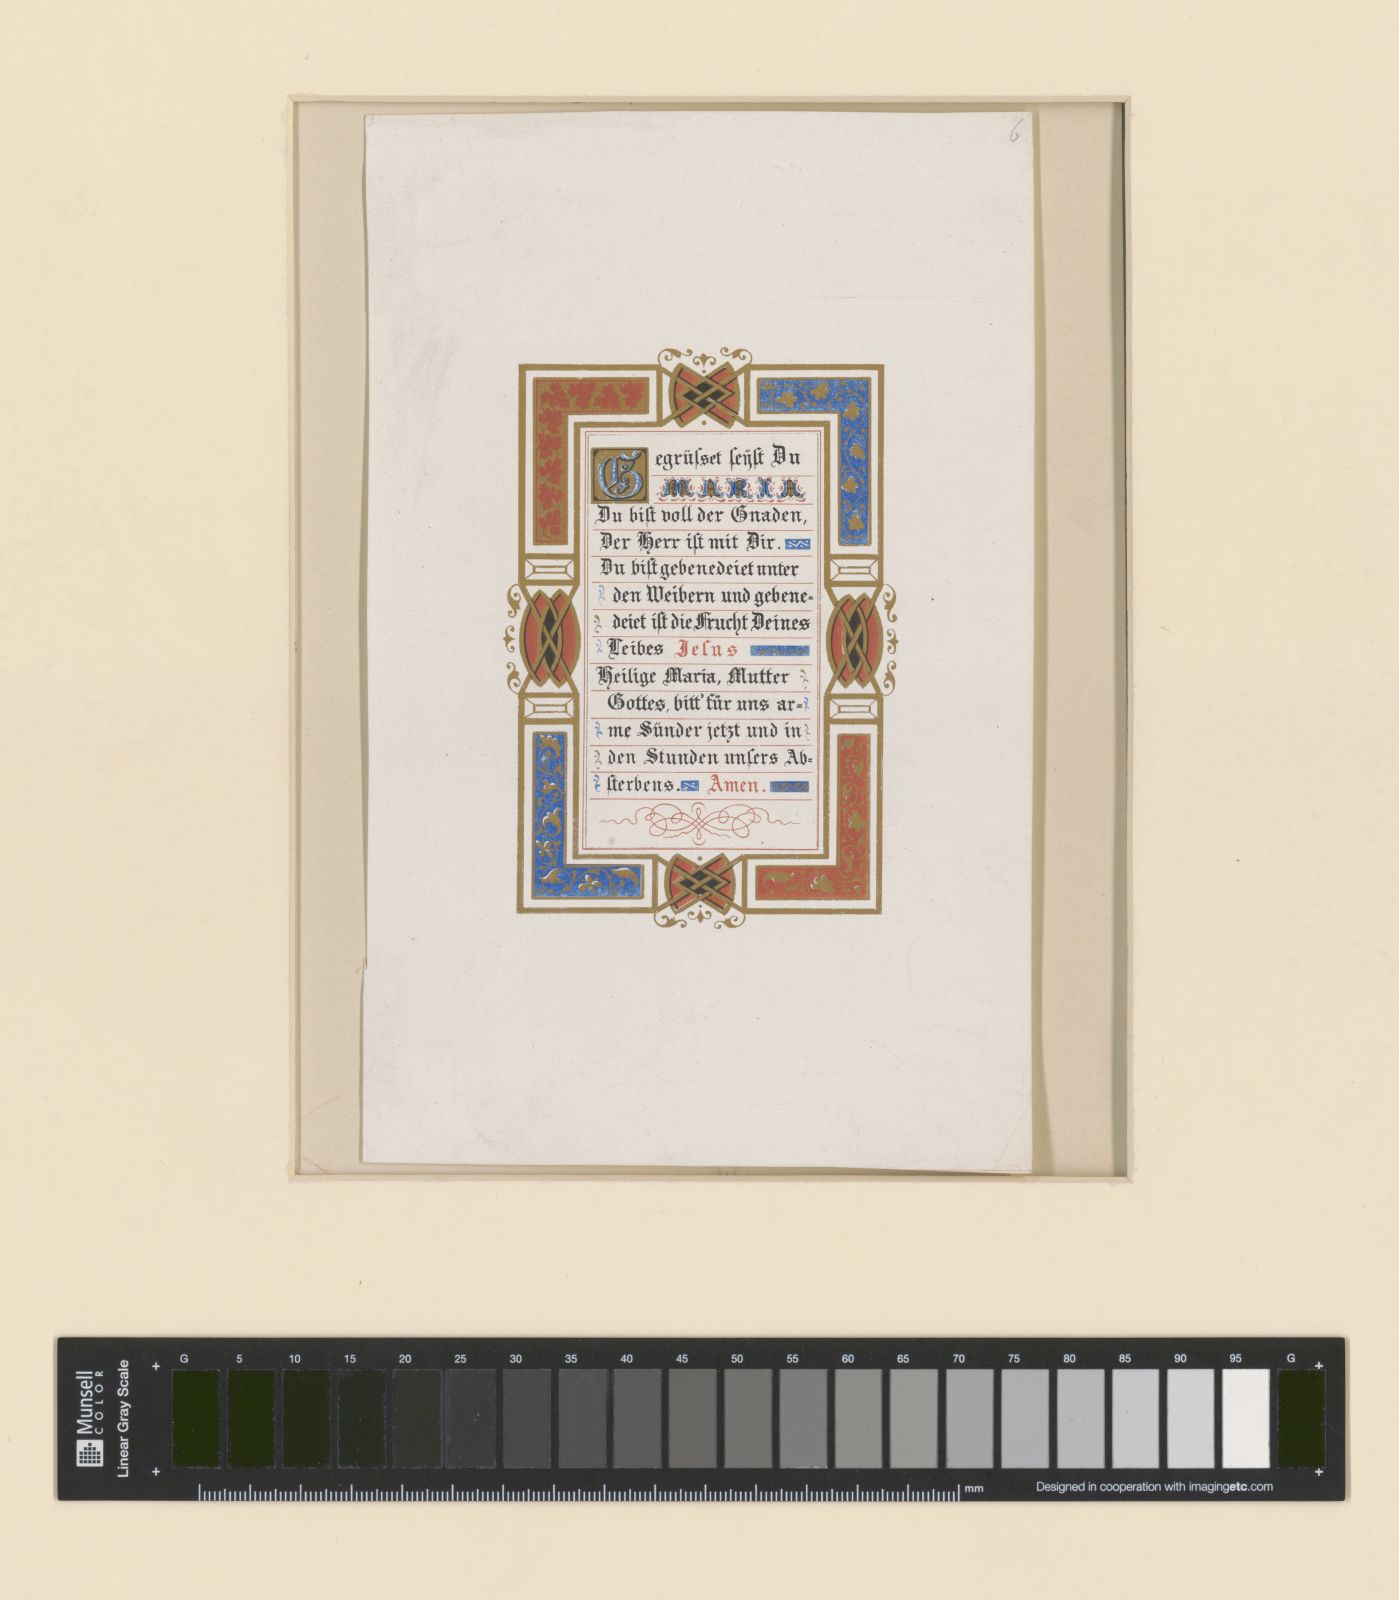 6
Gegrüſset ſeÿſt Du
MARIA
Du biſt voll der Gnaden,
Der Herr iſt mit Dir.
Du biſt gebenedeiet unter
den Weibern und gebene=
deiet iſt die Frucht Deines
Leibes Jeſus
Heilige Maria, Mutter
Gottes, bitt' für uns ar=
me Sünder jetzt und in
den Stunden unſers Ab=
ſterbens. Amen.
Munsell
COLOR
Linear Gray Scale
G 5 10 15 20 25 30 35 40 45 50 55 60 65 70 75 80 85 90 95 G
mm
Designed in cooperation with imagingetc.com